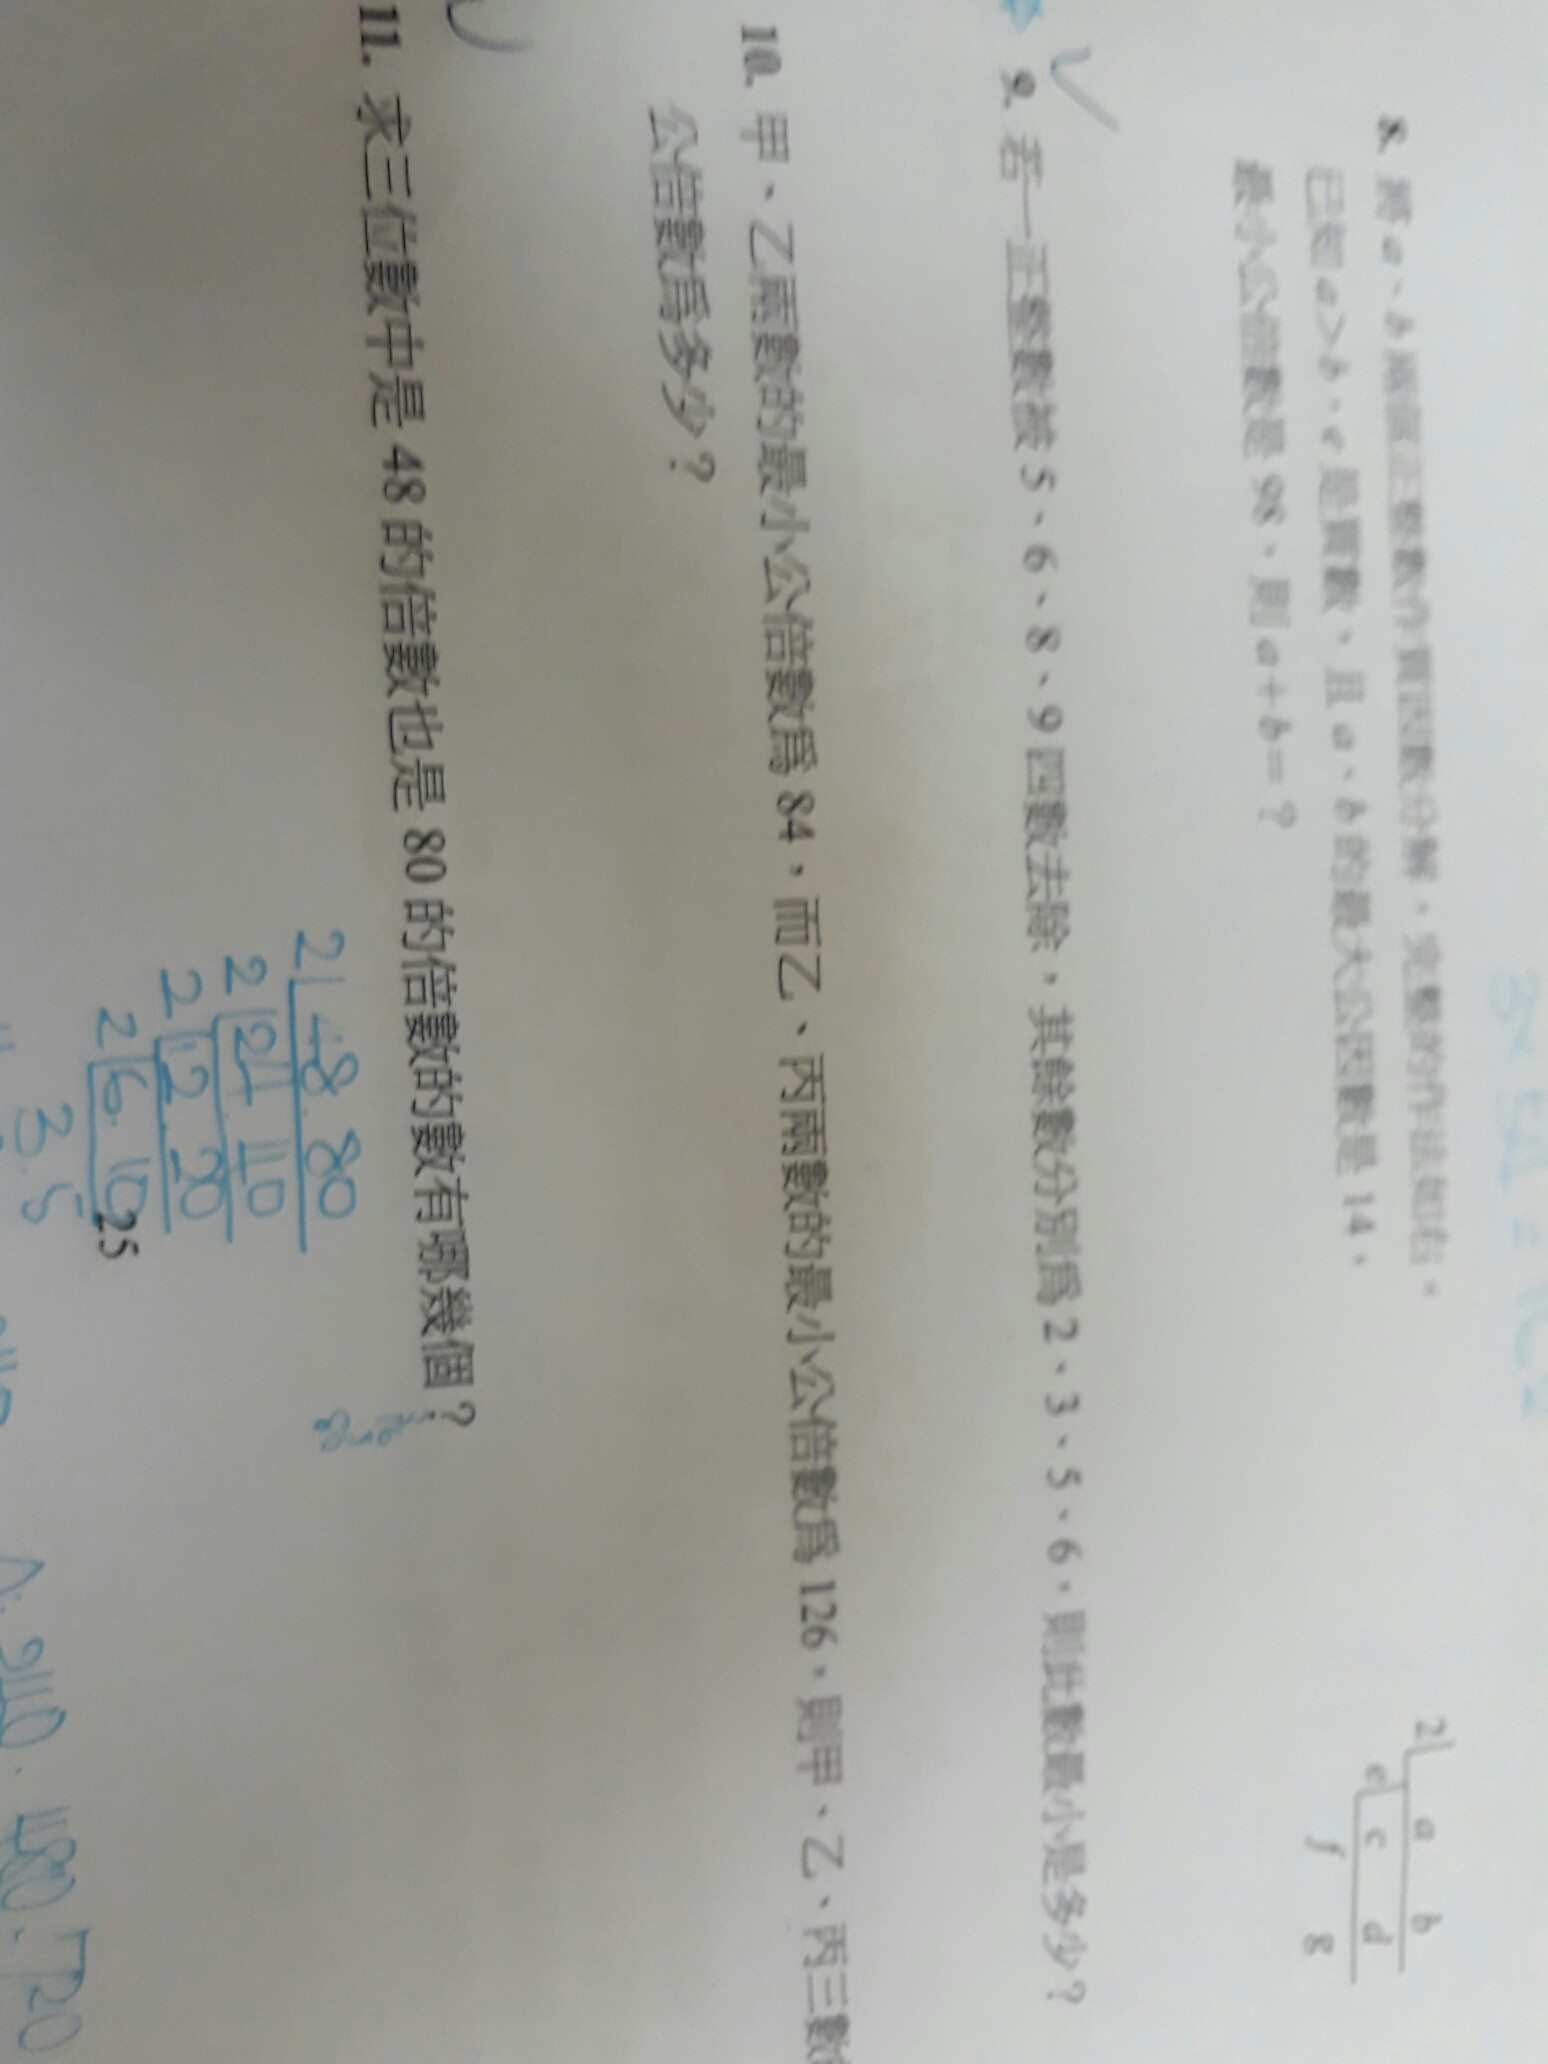 8. 將 a、b 兩個正整數作質因數分解，完整的作法如右。
已知 a＞b，e 是質數，且 a、b 的最大公因數是 14，
最小公倍數是 98，則 a＋b＝？
2 a b
e c d
f g
9. 若一正整數被 5、6、8、9 四數去除，其餘數分別為 2、3、5、6，則此數最小是多少？
10. 甲、乙兩數的最小公倍數為 84，而乙、丙兩數的最小公倍數為 126，則甲、乙、丙三數
公倍數為多少？
11. 求三位數中是 48 的倍數也是 80 的倍數的數有哪幾個？
2 48 80
2 24 40
2 12 20
2 6 10
3 5
25
A: 240、480、720